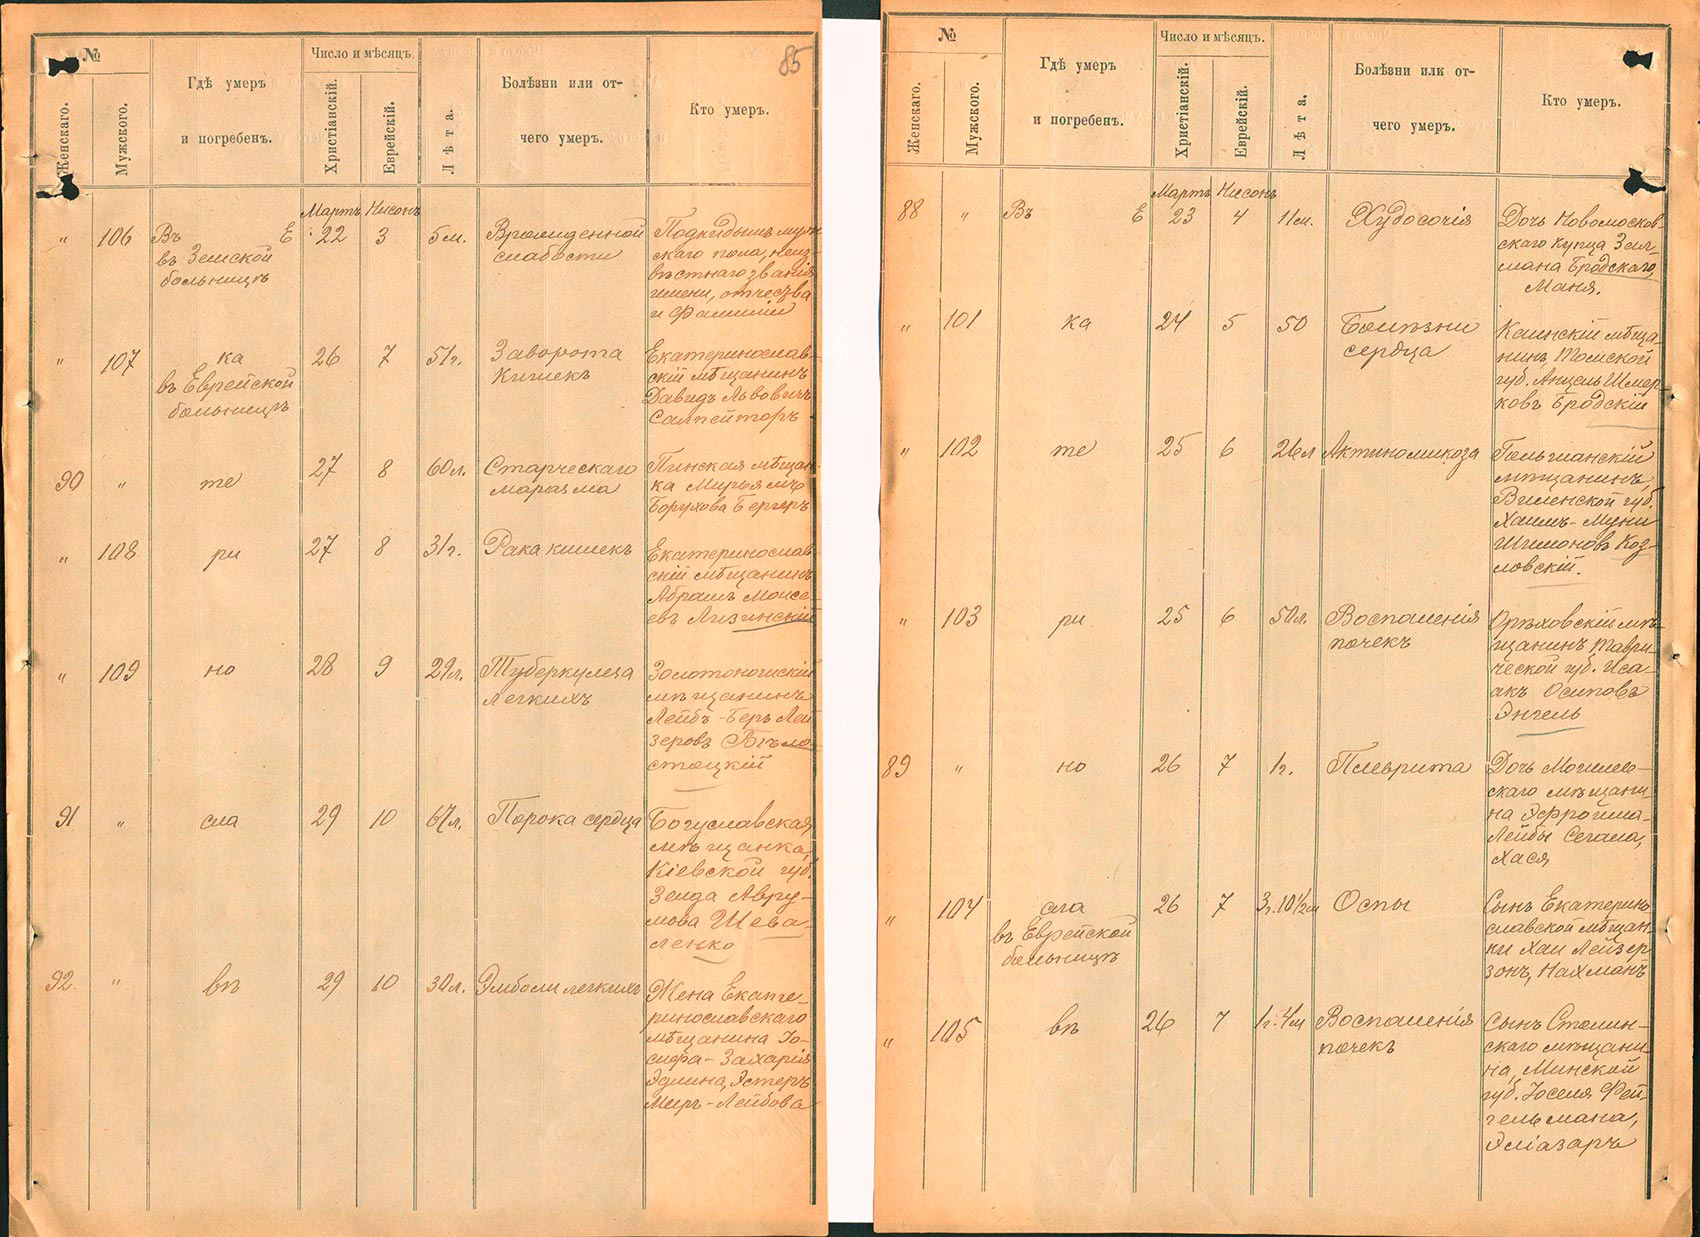 №
Женскаго.
Мужского.
Гдѣ умеръ
и погребенъ.
Число и мѣсяцъ.
Христіанскій.
Еврейскій.
Лѣта.
Болѣзни или от-
чего умеръ.
Кто умеръ.
85
Мартъ Нисонъ
" 106 Въ Е 22 3 5м. Врожденной
слабости
въ Земской
больницѣ
Подкидышъ муж
скаго пола, неиз-
вѣстнаго званія
имени, отчества
и фамиліи
" 107 ка 26 7 51г. Заворота
кишекъ
въ Еврейской
больницѣ
Екатеринослав-
скій мѣщанинъ
Давидъ Львовичъ
Салпейторъ
90 " те 27 8 60л. Старческаго
маразма
Пинская мѣщан-
ка Мирьямъ
Борухова Бергеръ
" 108 ри 27 8 31г. Рака кишекъ
Екатеринослав-
скій мѣщанинъ
Абрамъ Моисе-
евъ Лизинскій
" 109 но 28 9 29л. Туберкулеза
легкихъ
Золотоношскій
мѣщанинъ
Лейбъ-Беръ Лей
зеровъ Бѣло-
стоцкій
91 " сла 29 10 67л. Порока сердца
Богуславская
мѣщанка,
Кіевской губ.
Зелда Авру-
мова Шева-
ленко
92. " вѣ 29 10 30л. Эмболи легкихъ
Жена Екате-
ринославскаго
мѣщанина Іо-
сифа-Захарія
Эдлина, Эстеръ
Миръ-Лейбова
№
Женскаго.
Мужского.
Гдѣ умеръ
и погребенъ.
Число и мѣсяцъ.
Христіанскій.
Еврейскій.
Лѣта.
Болѣзни илк от-
чего умеръ.
Кто умеръ.
Мартъ Нисонъ
88 " Въ Е 23 4 11м. Худосочія
Дочь Новомосков-
скаго купца Зел-
мана Бродскаго,
Маня.
" 101 ка 24 5 50 Болѣзни
сердца
Каинскій мѣща-
нинъ Томской
губ. Анцель Шмер
ковъ Бродскій
" 102 те 25 6 26л Актиномикоза
Гольшанскій
мѣщанинъ,
Виленской губ.
Хаимъ-Муни
Шлимоновъ Коз-
ловскій.
" 103 ри 25 6 50л. Воспаленія
почекъ
Орѣховскій мѣ-
щанинъ Таври-
ческой губ. Иса-
акъ Осиповъ
Энгель
89 " но 26 7 1г. Плеврита
Дочь Могилев-
скаго мѣщани-
на Эфройма-
Лейбы Сегала,
Хася
" 104 сла 26 7 3г. 10½м Оспы
въ Еврейской
больницѣ
Сынъ Екатерино
славской мѣщан-
ки Хаи Лейзер
зонъ, Нахманъ
" 105 вѣ 26 7 1г. 4м Воспаленія
почекъ
Сынъ Столин-
скаго мѣщани-
на, Минской
губ. Іоселя Фей-
гельмана,
Эліазаръ